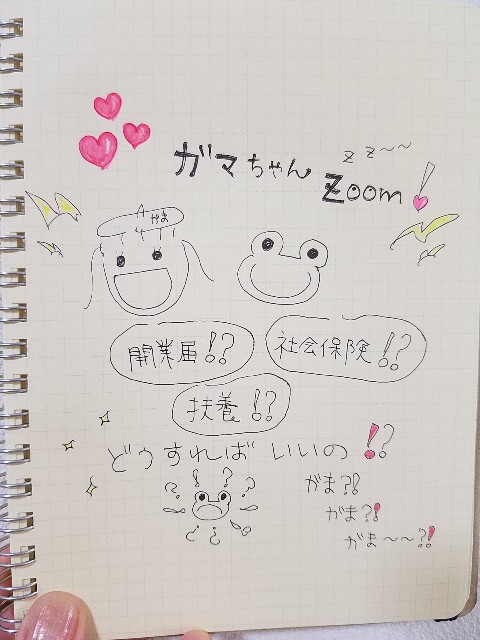 zz～～
ガマちゃん Zoom!
がま
開業届!? 社会保険!?
扶養!?
どうすればいいの!?
? ! ? ?
がま?!
がま?!
がま～～?!
? ?